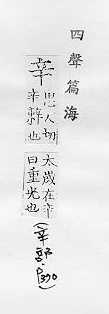 四聲篇海
思人切
辛辢也
太歲在辛
曰重光也
(辛部. P390)